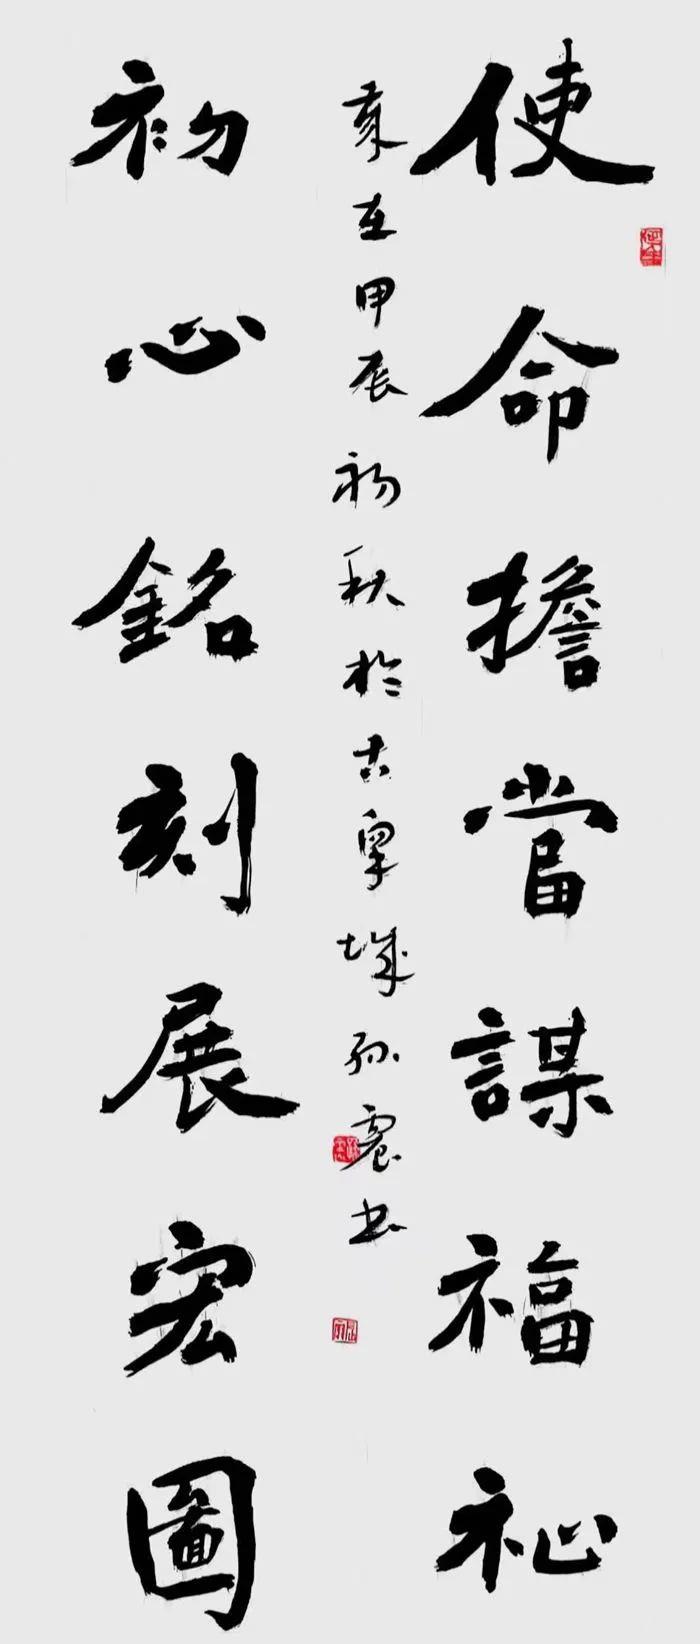 使命擔當謀福祉
歲在甲辰初秋於古皋城孫書
初心銘刻展宏圖